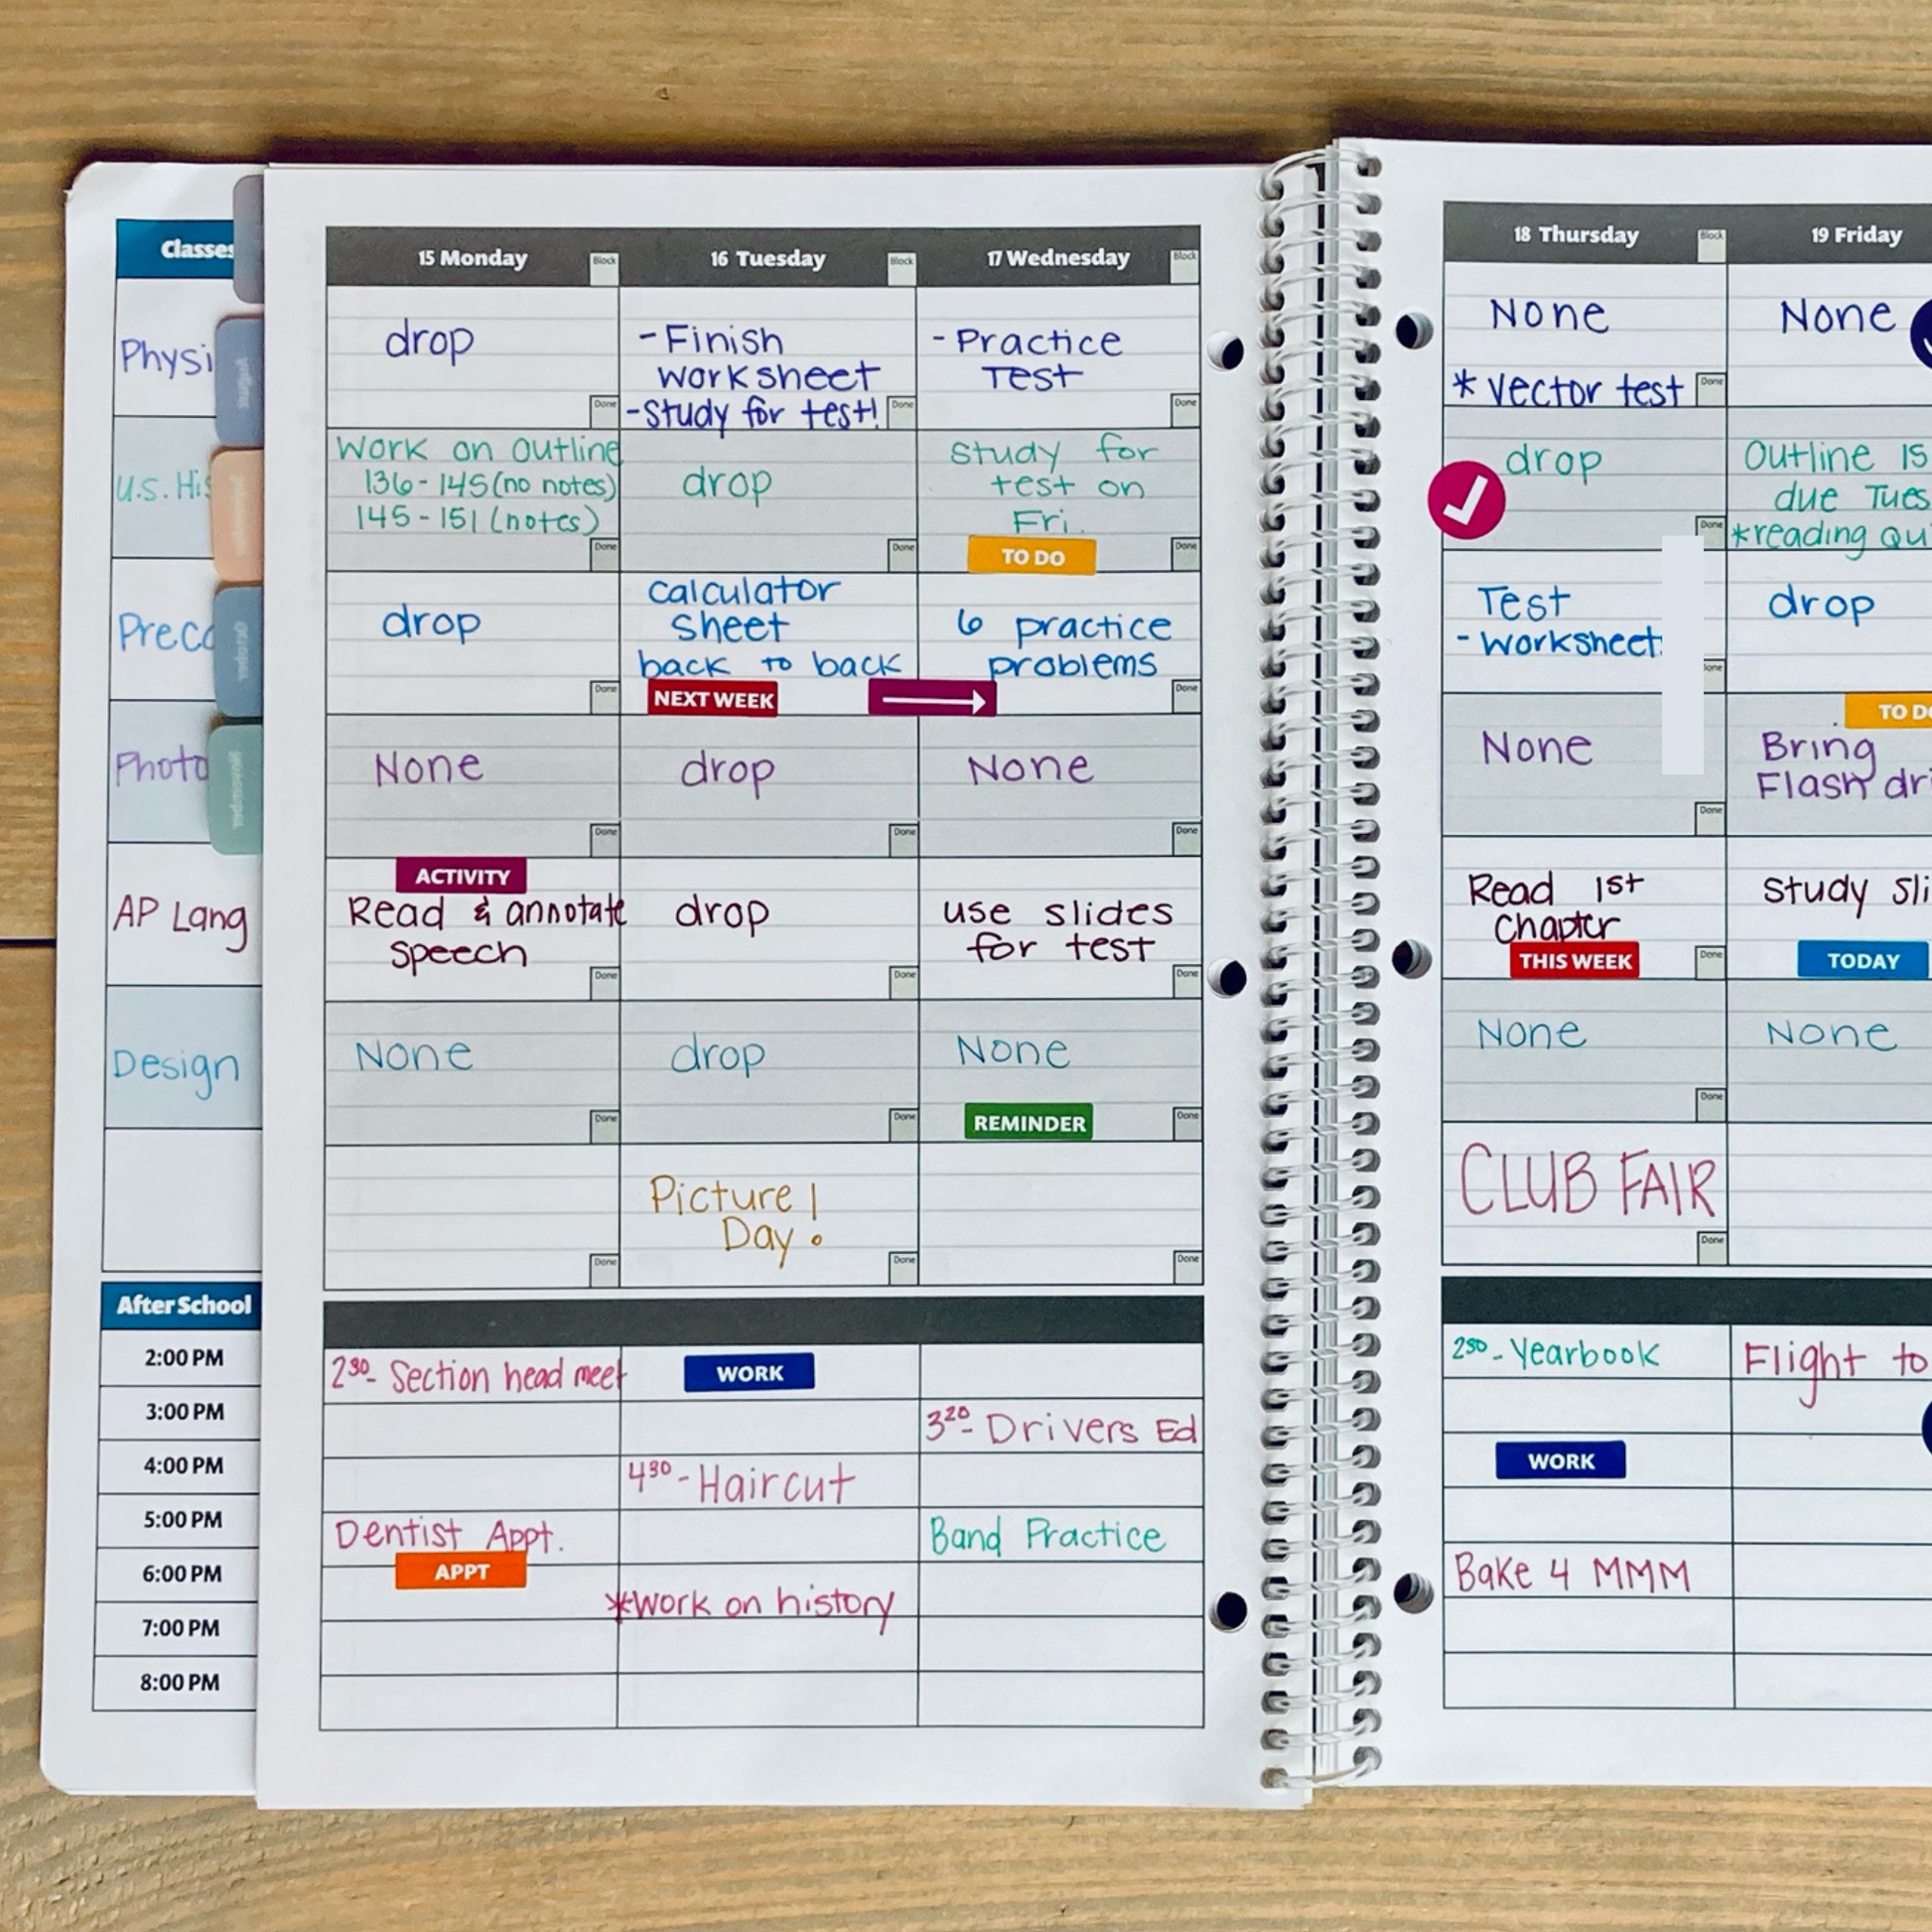 Classes
15 Monday
Block
16 Tuesday
Block
17 Wednesday
Block
18 Thursday
Block
19 Friday
drop
-Finish
worksheet
-Study for test!
Done
Done
-Practice
Test
Done
None
*Vector test
Done
None
U.S.
Work on outline
136-145 (no notes)
145-151 (notes)
Done
drop
Done
Study for
test on
Fri.
TO DO
Done
drop
Done
Outline
due
*reading
drop
Done
calculator
sheet
back to back
NEXT WEEK
6 practice
problems
Done
Test
-worksheet
drop
None
Done
drop
Done
None
Done
None
Done
TO
Bring
Flash
AP Lang
ACTIVITY
Read & annotate
speech
Done
drop
Done
use slides
for test
Done
Read 1st
Chapter
THIS WEEK
Done
Study
TODAY
Design
None
Done
drop
Done
None
REMINDER
Done
None
Done
None
Done
Picture
Day!
Done
Done
CLUB FAIR
Done
After School
2:00 PM
3:00 PM
4:00 PM
5:00 PM
6:00 PM
7:00 PM
8:00 PM
230- Section head meet
Dentist Appt.
APPT
WORK
430-Haircut
*Work on history
320- Drivers Ed
Band Practice
230-Yearbook
WORK
Bake 4 MMM
Flight to